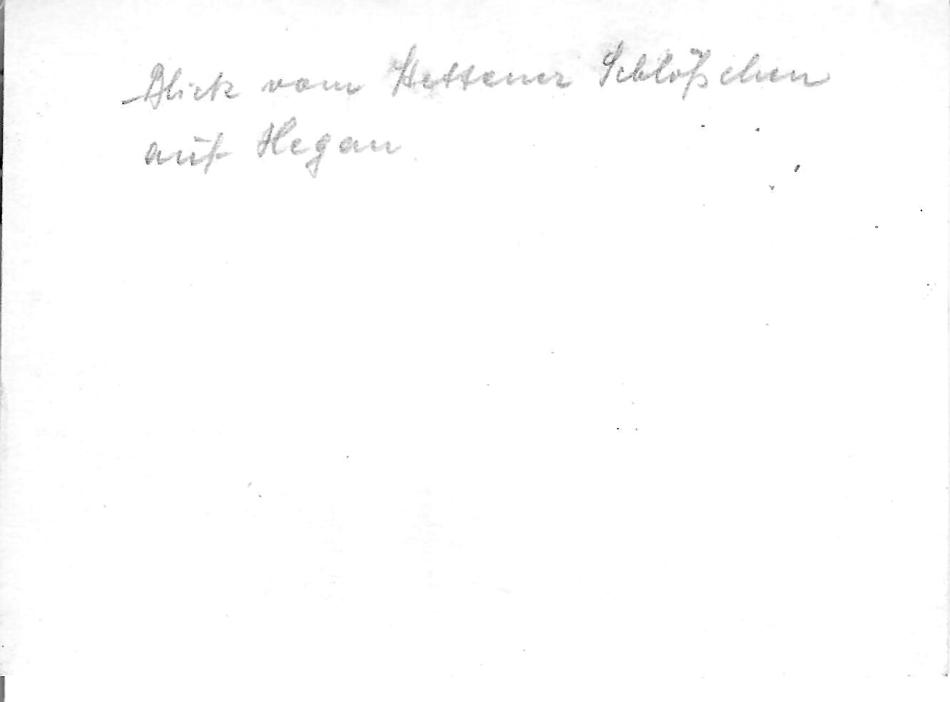 Blick vom Hettener Schlößchen
auf Hegau